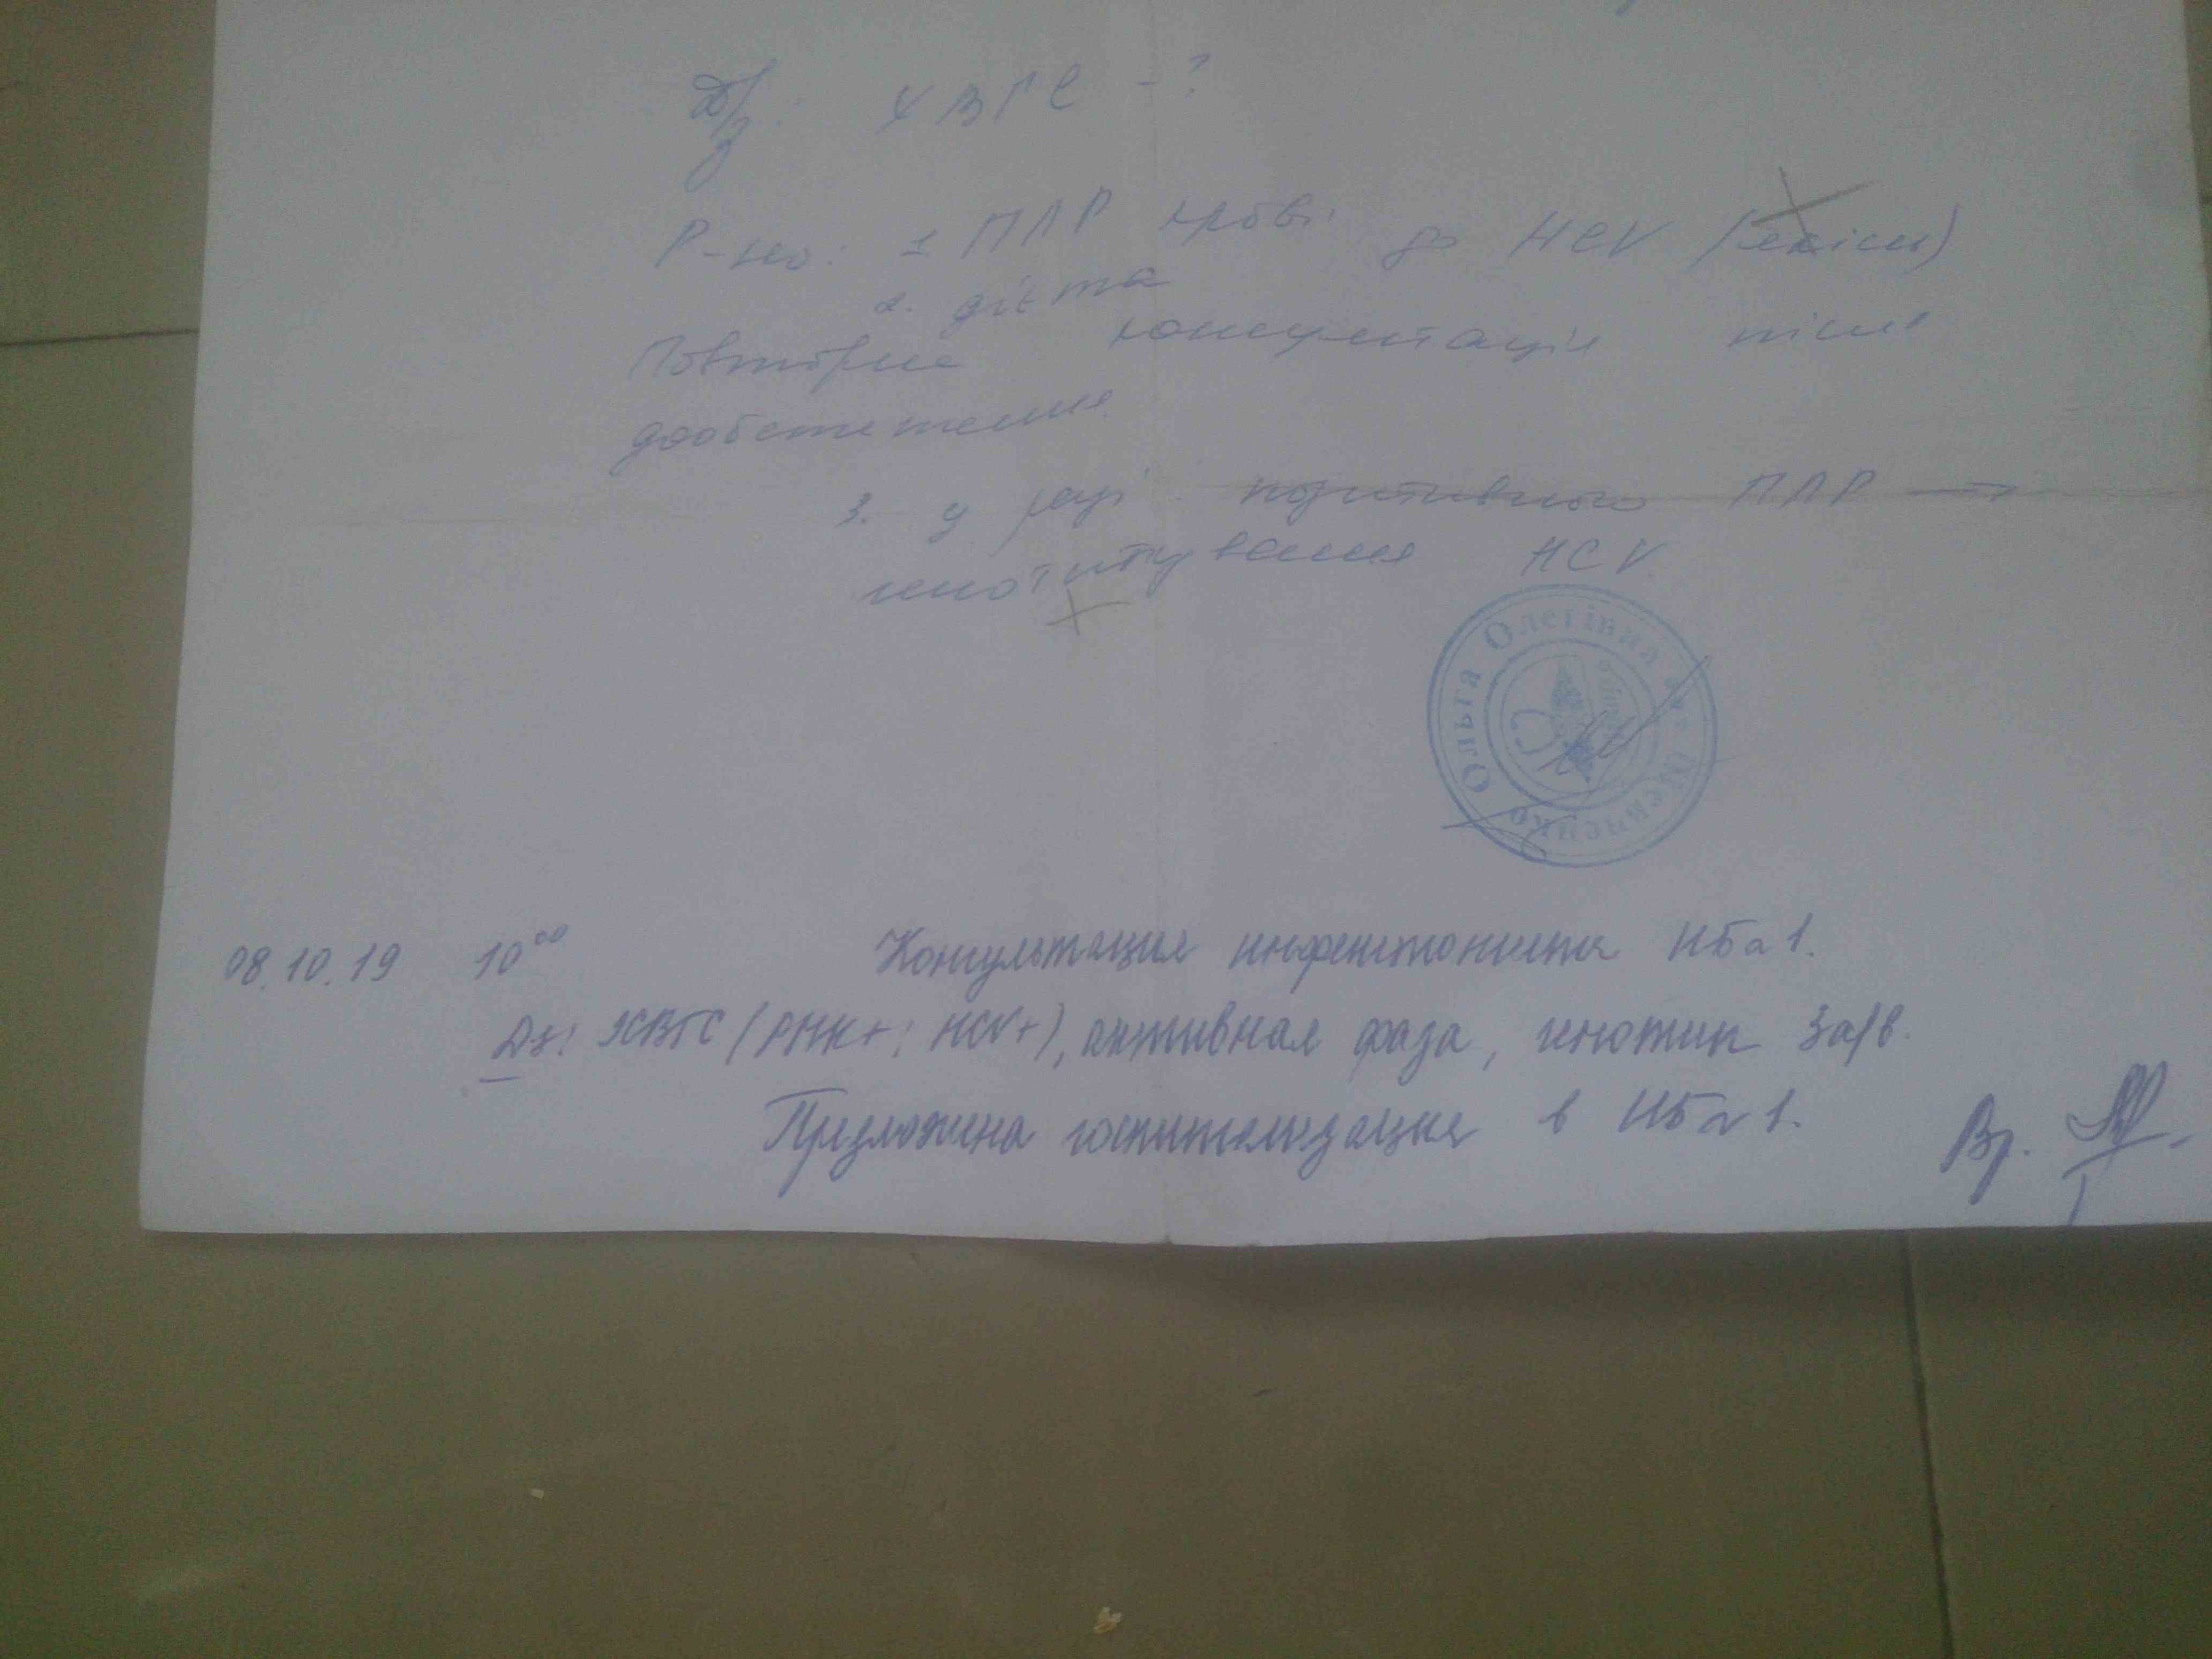 Д/з: ХВГС - ?
Р-но: 1 ПЛР крові до HCV (якісн)
2. дієта
Повторна консультація після
дообстеження
3. у разі позитивного ПЛР →
генотипування HCV
Ольга Олегівна
08.10.19 10⁰⁰ Консультация инфекциониста ИБ№1.
Дз: ХВГС (РНК+; HCV+), активная фаза, генотип 3а/в.
Предложена госпитализация в ИБ№1.
Вр.